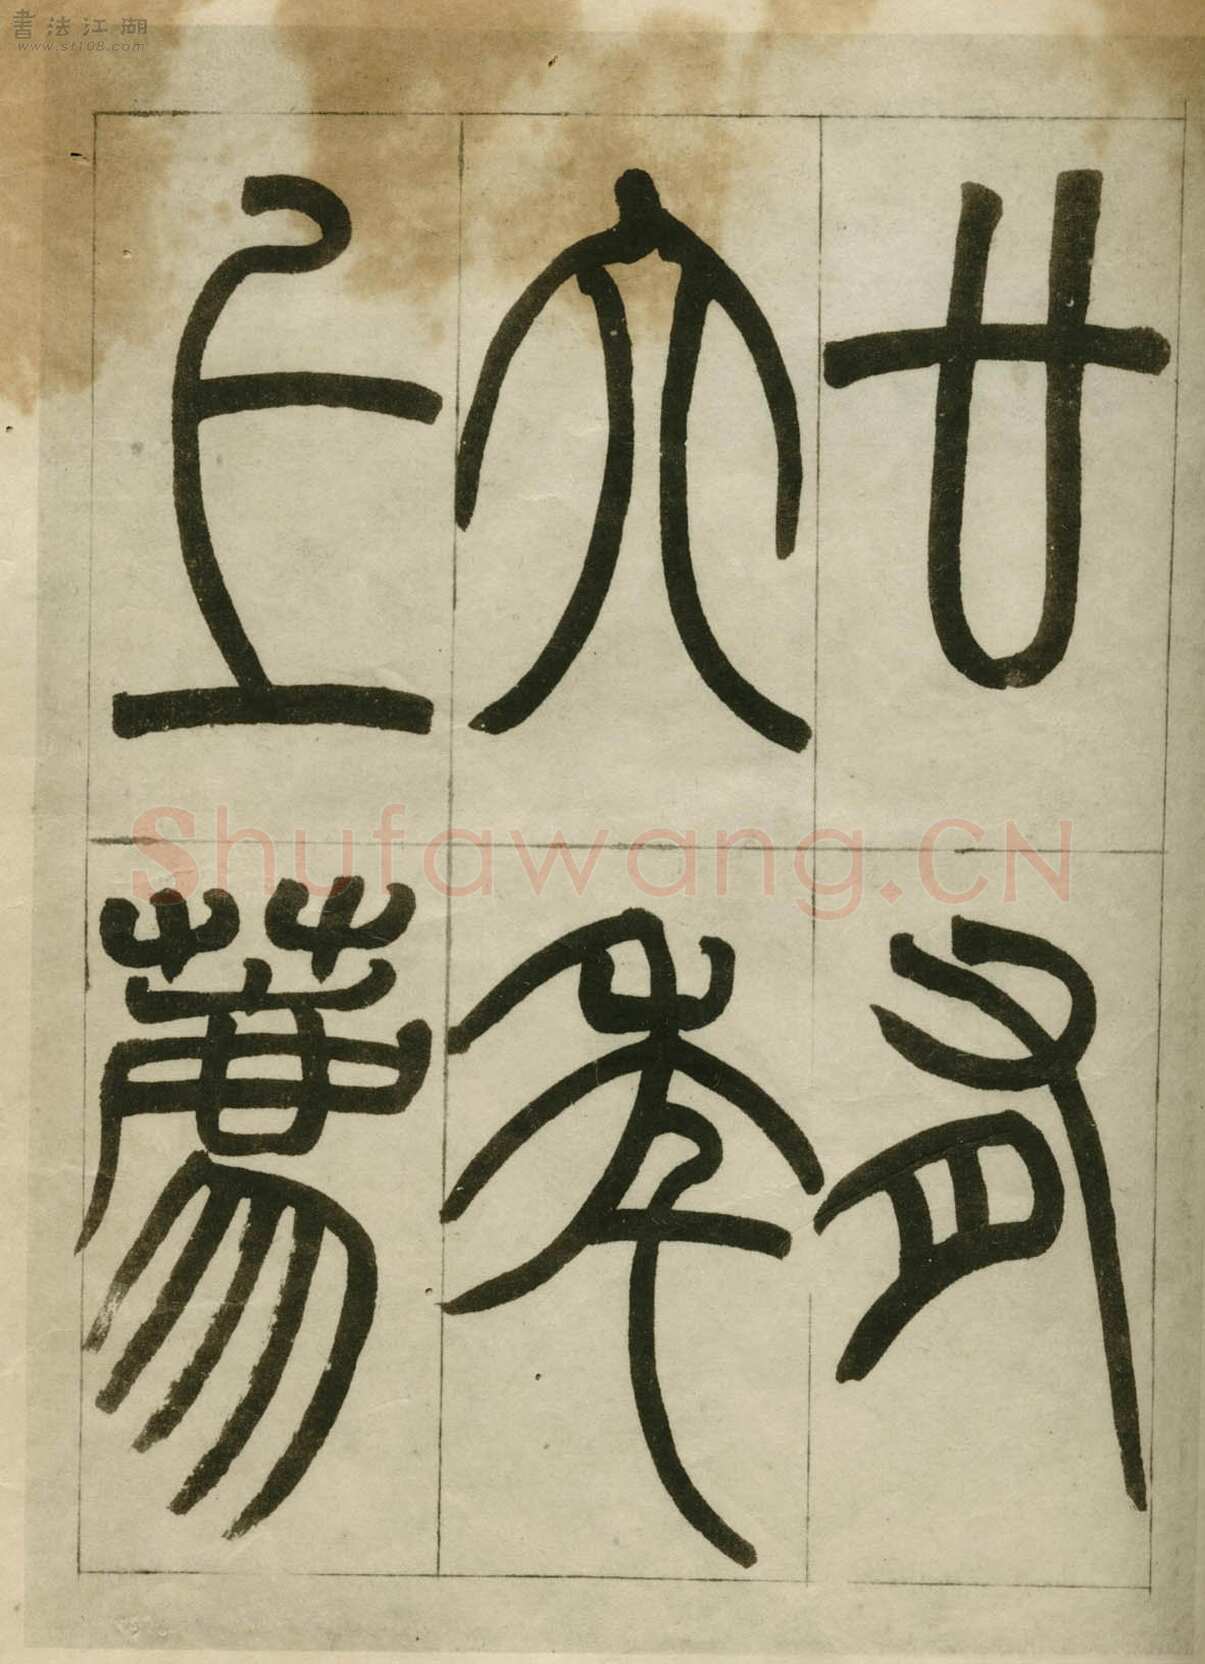 書法江湖
www.sf108.com
廿有
六年
上薦
Shufawang.CN